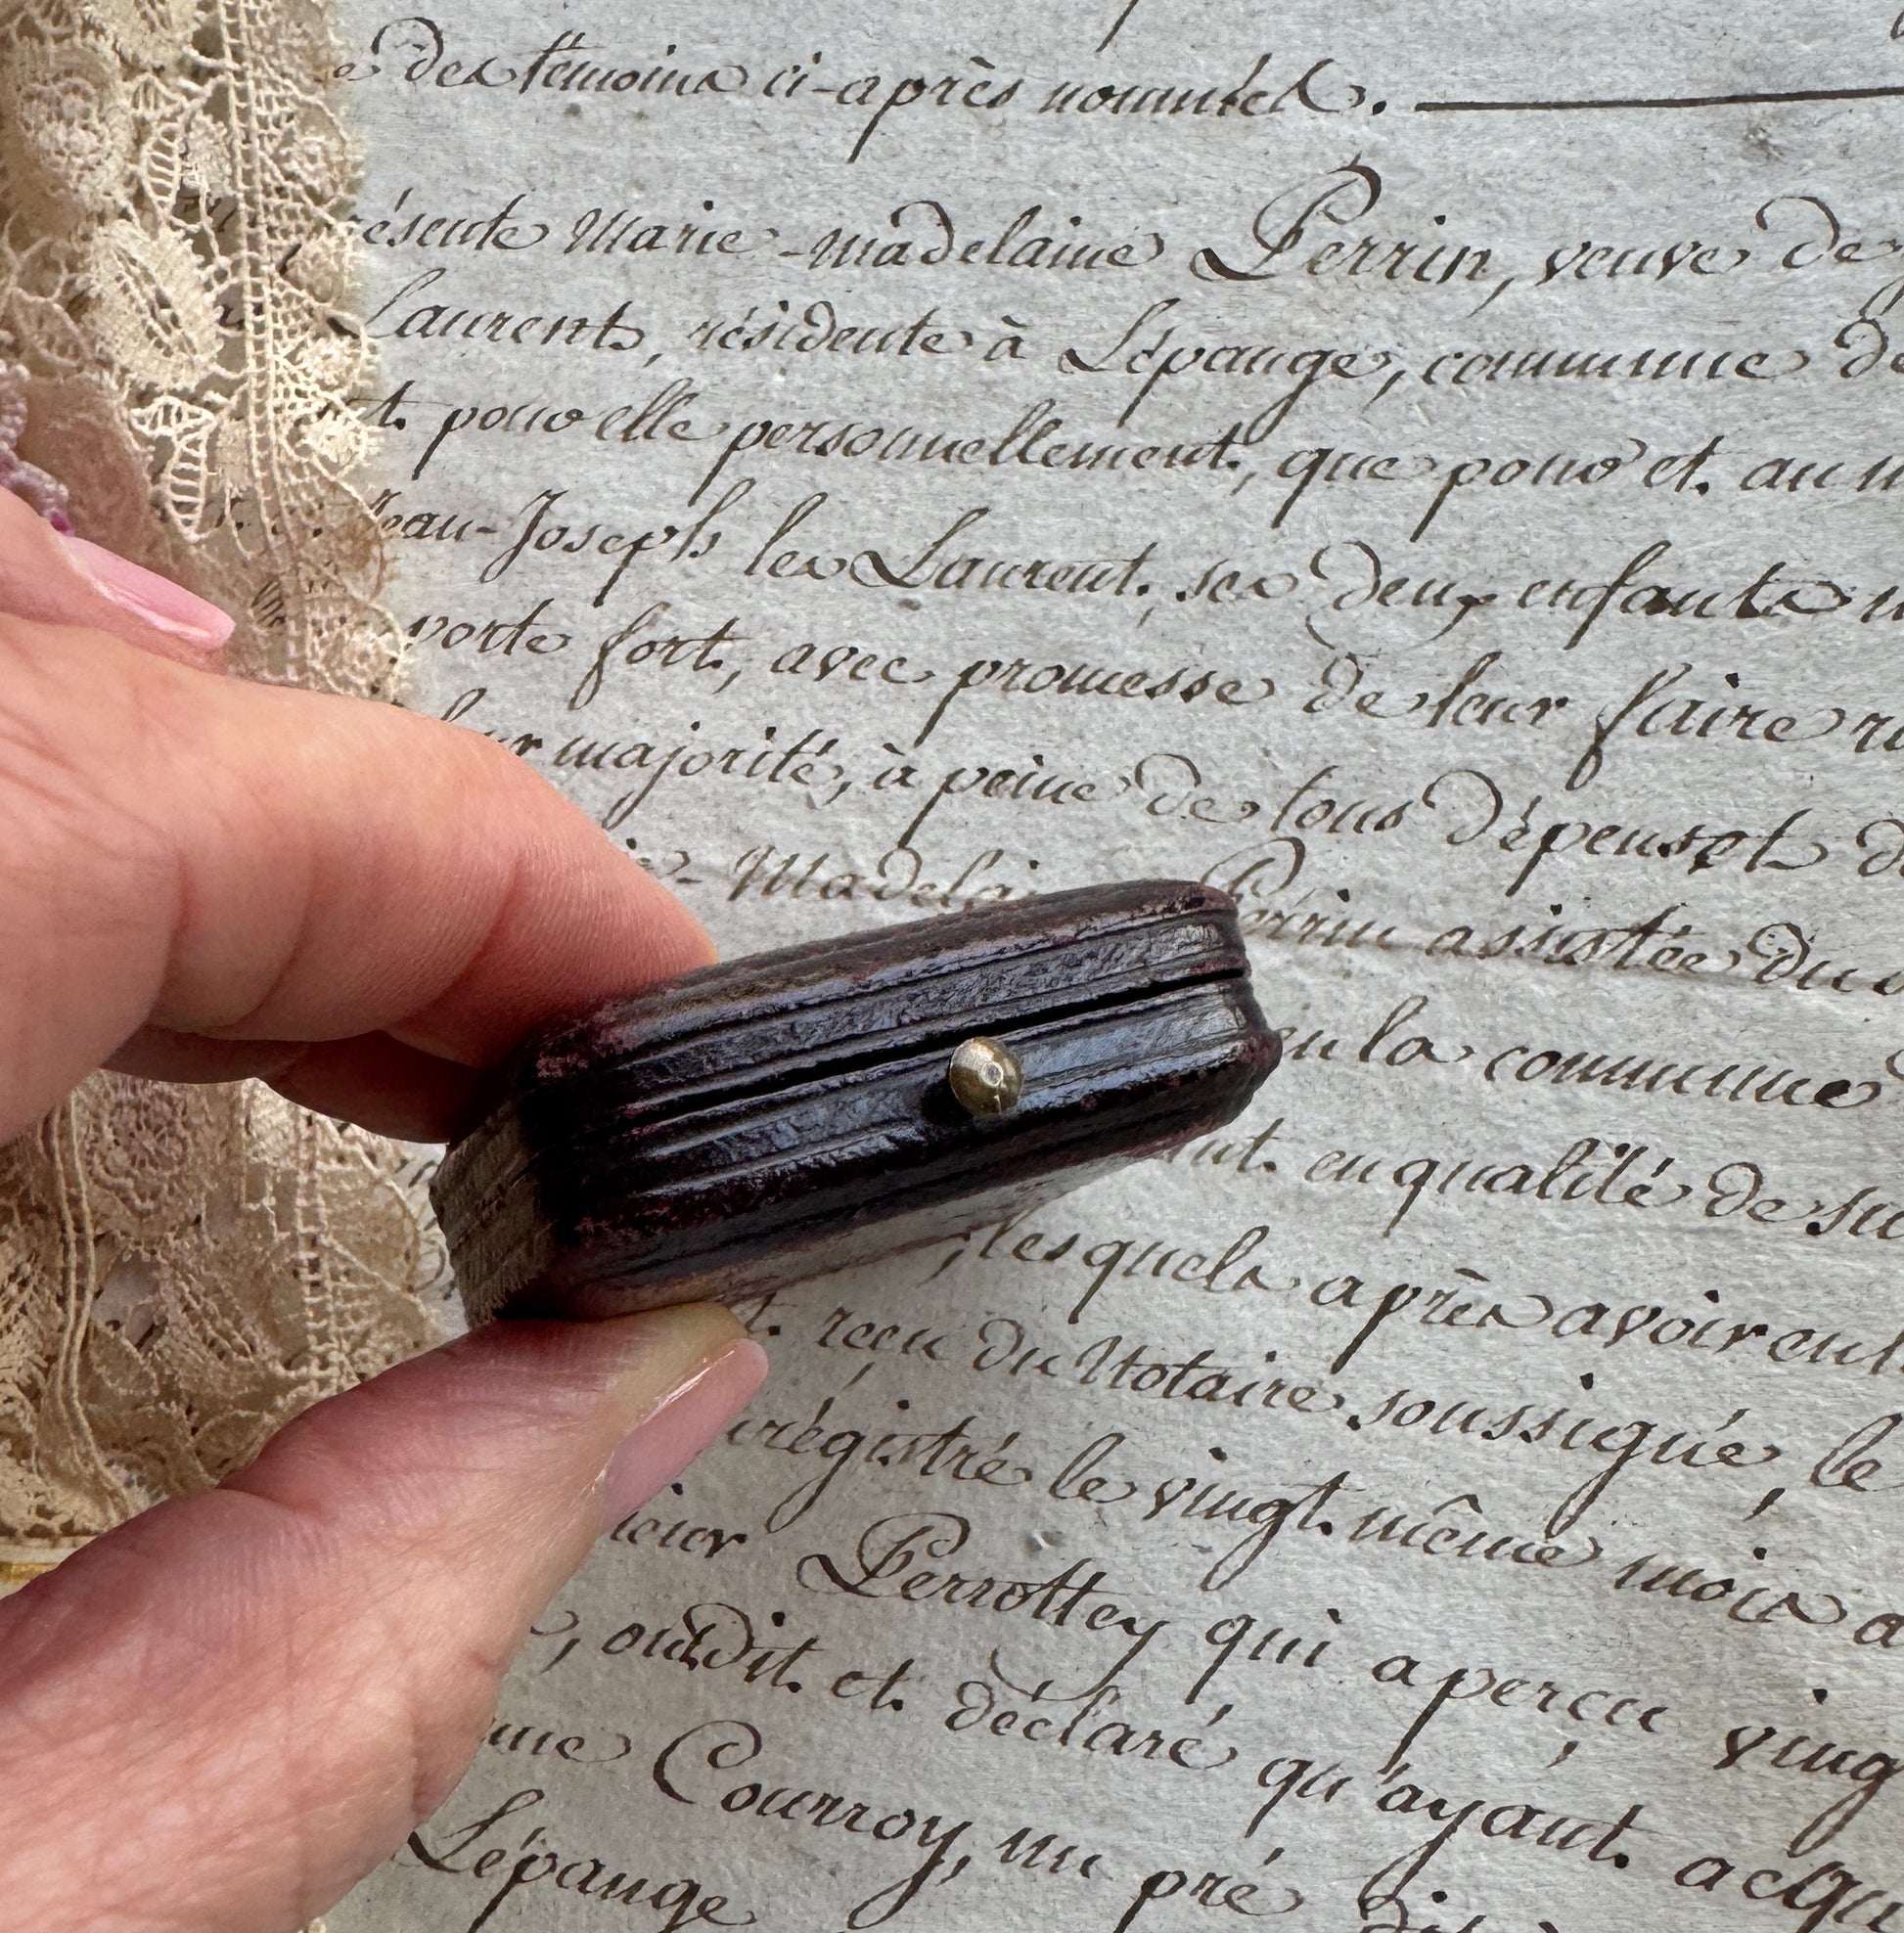 des témoins ci-après nommés.
ésente Marie-madelaine Perrin, veuve de
Laurent, résidente à Lépange, commune de
t. pour elle personnellement, que pour et. au
Jean-Joseph les Laurent, ses deux enfants
porte fort, avec promesse de leur faire
majorité, à peine de tous dépens et
Madelai Perrin assistée du
en la commune
nt. en qualité de
, lesquels après avoir ent
t. reçu du Notaire soussigné, le
enrégistré le vingt. même mois
Perrottey qui aperçu ving
, ont dit. et. déclaré qu'ayant. acqu
Courroy, un pré dit
Lépange